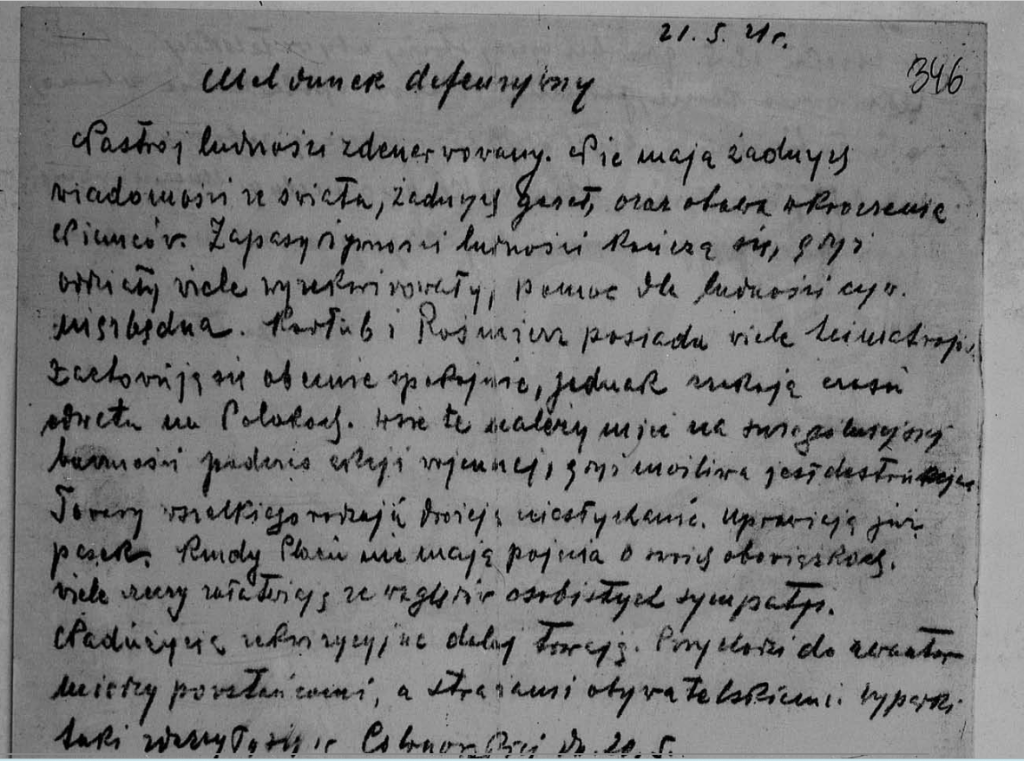 21. 5. 21 r.
346
Meldunek defensywny
Nastrój ludności zdenerwowany. Nie mają żadnych
wiadomości ze świata, żadnych gazet, oraz obawa wkroczenia
Niemców. Zapasy żywności ludności kończą się, gdyż
oddziały wiele wyrekwirowały, pomoc dla ludności cyw.
niezbędna. Kortub i Rośmierz posiada wiele
Zachowują się obecnie spokojnie, jednak czekają czasu
odwetu na Polakach. Wsie te należy mieć na
baczności podczas akcji wojennej, gdyż możliwa jest destrukcja.
Towary wszelkiego rodzaju drożeją niesłychanie. Uprawiają już
pasek. Rady mają pojęcia o swoich obowiązkach.
Wiele rzeczy załatwiają ze względów osobistych sympatyj.
Nadużycia rekwizycyjne dalej trwają. Przychodzi do awantur
między powstańcami, a strażami obywatelskiemi. Wypadki
taki zdarzył się w Colonowskiej dn. 20. 5.